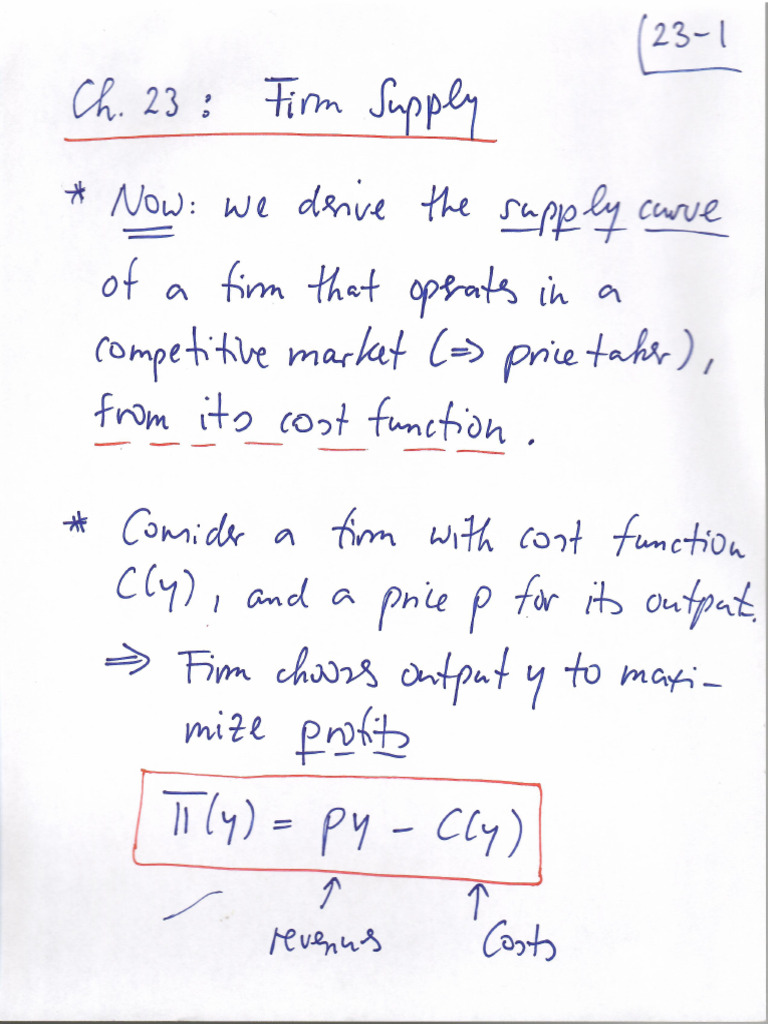 23-1
Ch. 23: Firm Supply
* Now: we derive the supply curve
of a firm that operates in a
competitive market (⇒ price taker),
from its cost function.
* Consider a firm with cost function
C(y), and a price p for its output.
⇒ Firm chooses output y to maxi-
mize profits
π(y) = py - C(y)
↑ ↑
revenues Costs